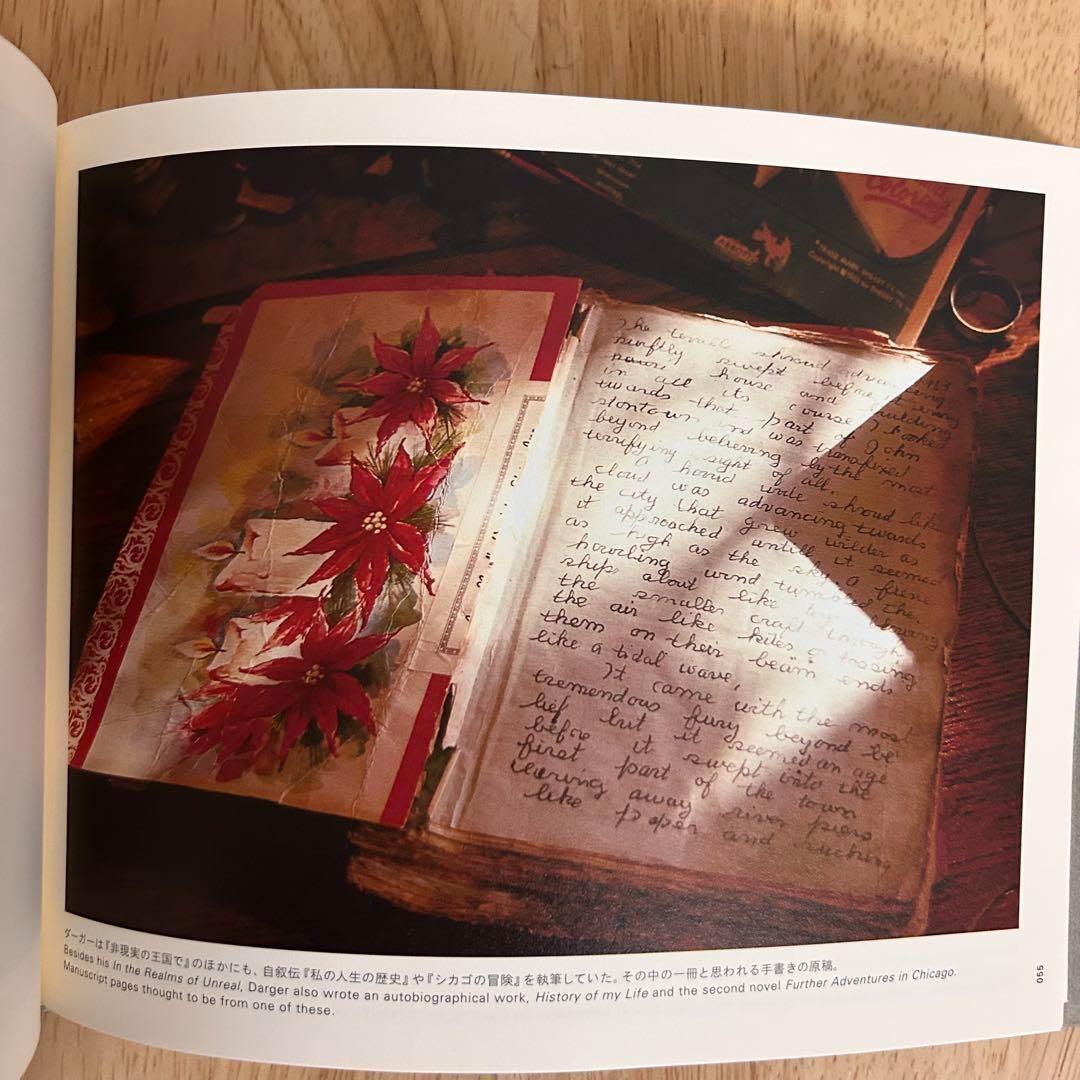 Coloring
The terrible shroud advancing
swiftly swept before
house and
in all its course, I looked
towards that part of John
stontown and was transfixed
beyond believing by the most
terrifying sight of all.
A horrid wide shroud like
cloud was advancing towards
the city that grew wilder as
it approached untill it seemed
as high as the sky, a fierce
howling wind turned the
ships about like toys blowing
the smaller craft through
the air like kites or tossing
them on their beam ends
like a tidal wave,
It came with the most
tremendous fury beyond be
lief but it seemed an age
before it swept into the
first part of the town
tearing away river piers
like paper and
ダーガーは『非現実の王国で』のほかにも、自叙伝『私の人生の歴史』や『シカゴの冒険』を執筆していた。その中の一冊と思われる手書きの原稿。
Besides his In the Realms of Unreal, Darger also wrote an autobiographical work, History of my Life and the second novel Further Adventures in Chicago.
Manuscript pages thought to be from one of these.
055